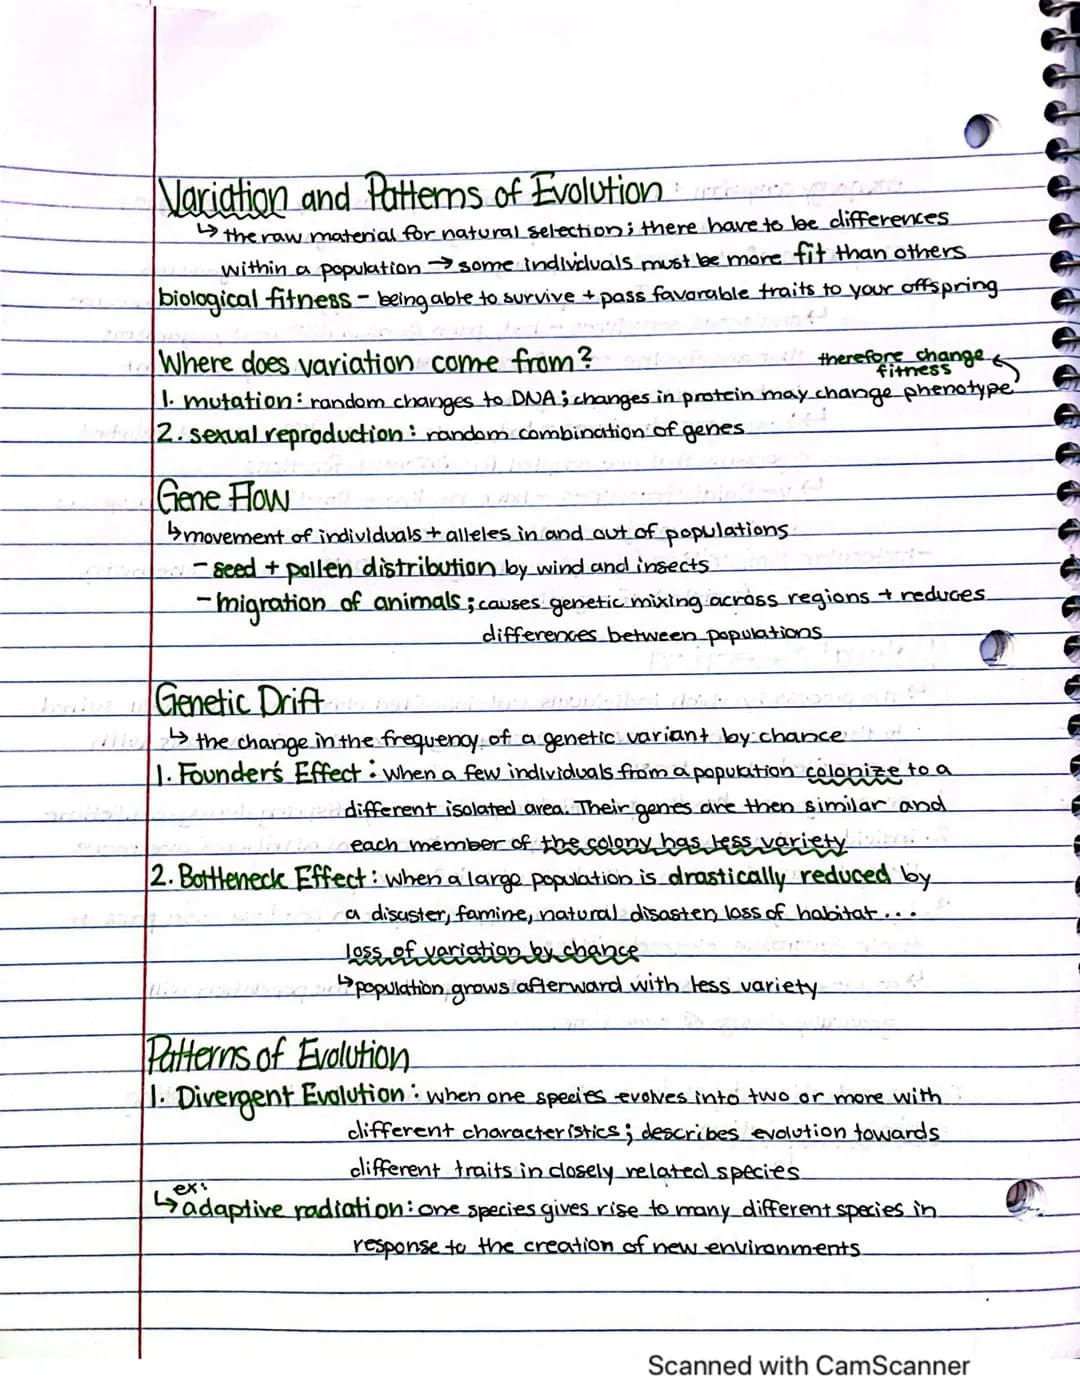 Variation and Patterns of Evolution:
↳ the raw material for natural selection; there have to be differences
within a population → some individuals must be more fit than others
biological fitness - being able to survive + pass favorable traits to your offspring
Where does variation come from?
therefore change
fitness
1. mutation: random changes to DNA; changes in protein may change phenotype
2. sexual reproduction: random combination of genes
Gene Flow
↳ movement of individuals + alleles in and out of populations
- seed + pollen distribution by wind and insects
- migration of animals; causes genetic mixing across regions + reduces
differences between populations
Genetic Drift
↳ the change in the frequency of a genetic variant by chance
1. Founder's Effect: when a few individuals from a population colonize to a
different isolated area. Their genes are then similar and
each member of the colony has less variety
2. Bottleneck Effect: when a large population is drastically reduced by
a disaster, famine, natural disaster, loss of habitat...
loss of variation by chance
↳ population grows afterward with less variety
Patterns of Evolution
1. Divergent Evolution: when one species evolves into two or more with
different characteristics; describes evolution towards
different traits in closely related species
ex:
↳ adaptive radiation: one species gives rise to many different species in
response to the creation of new environments
Scanned with CamScanner